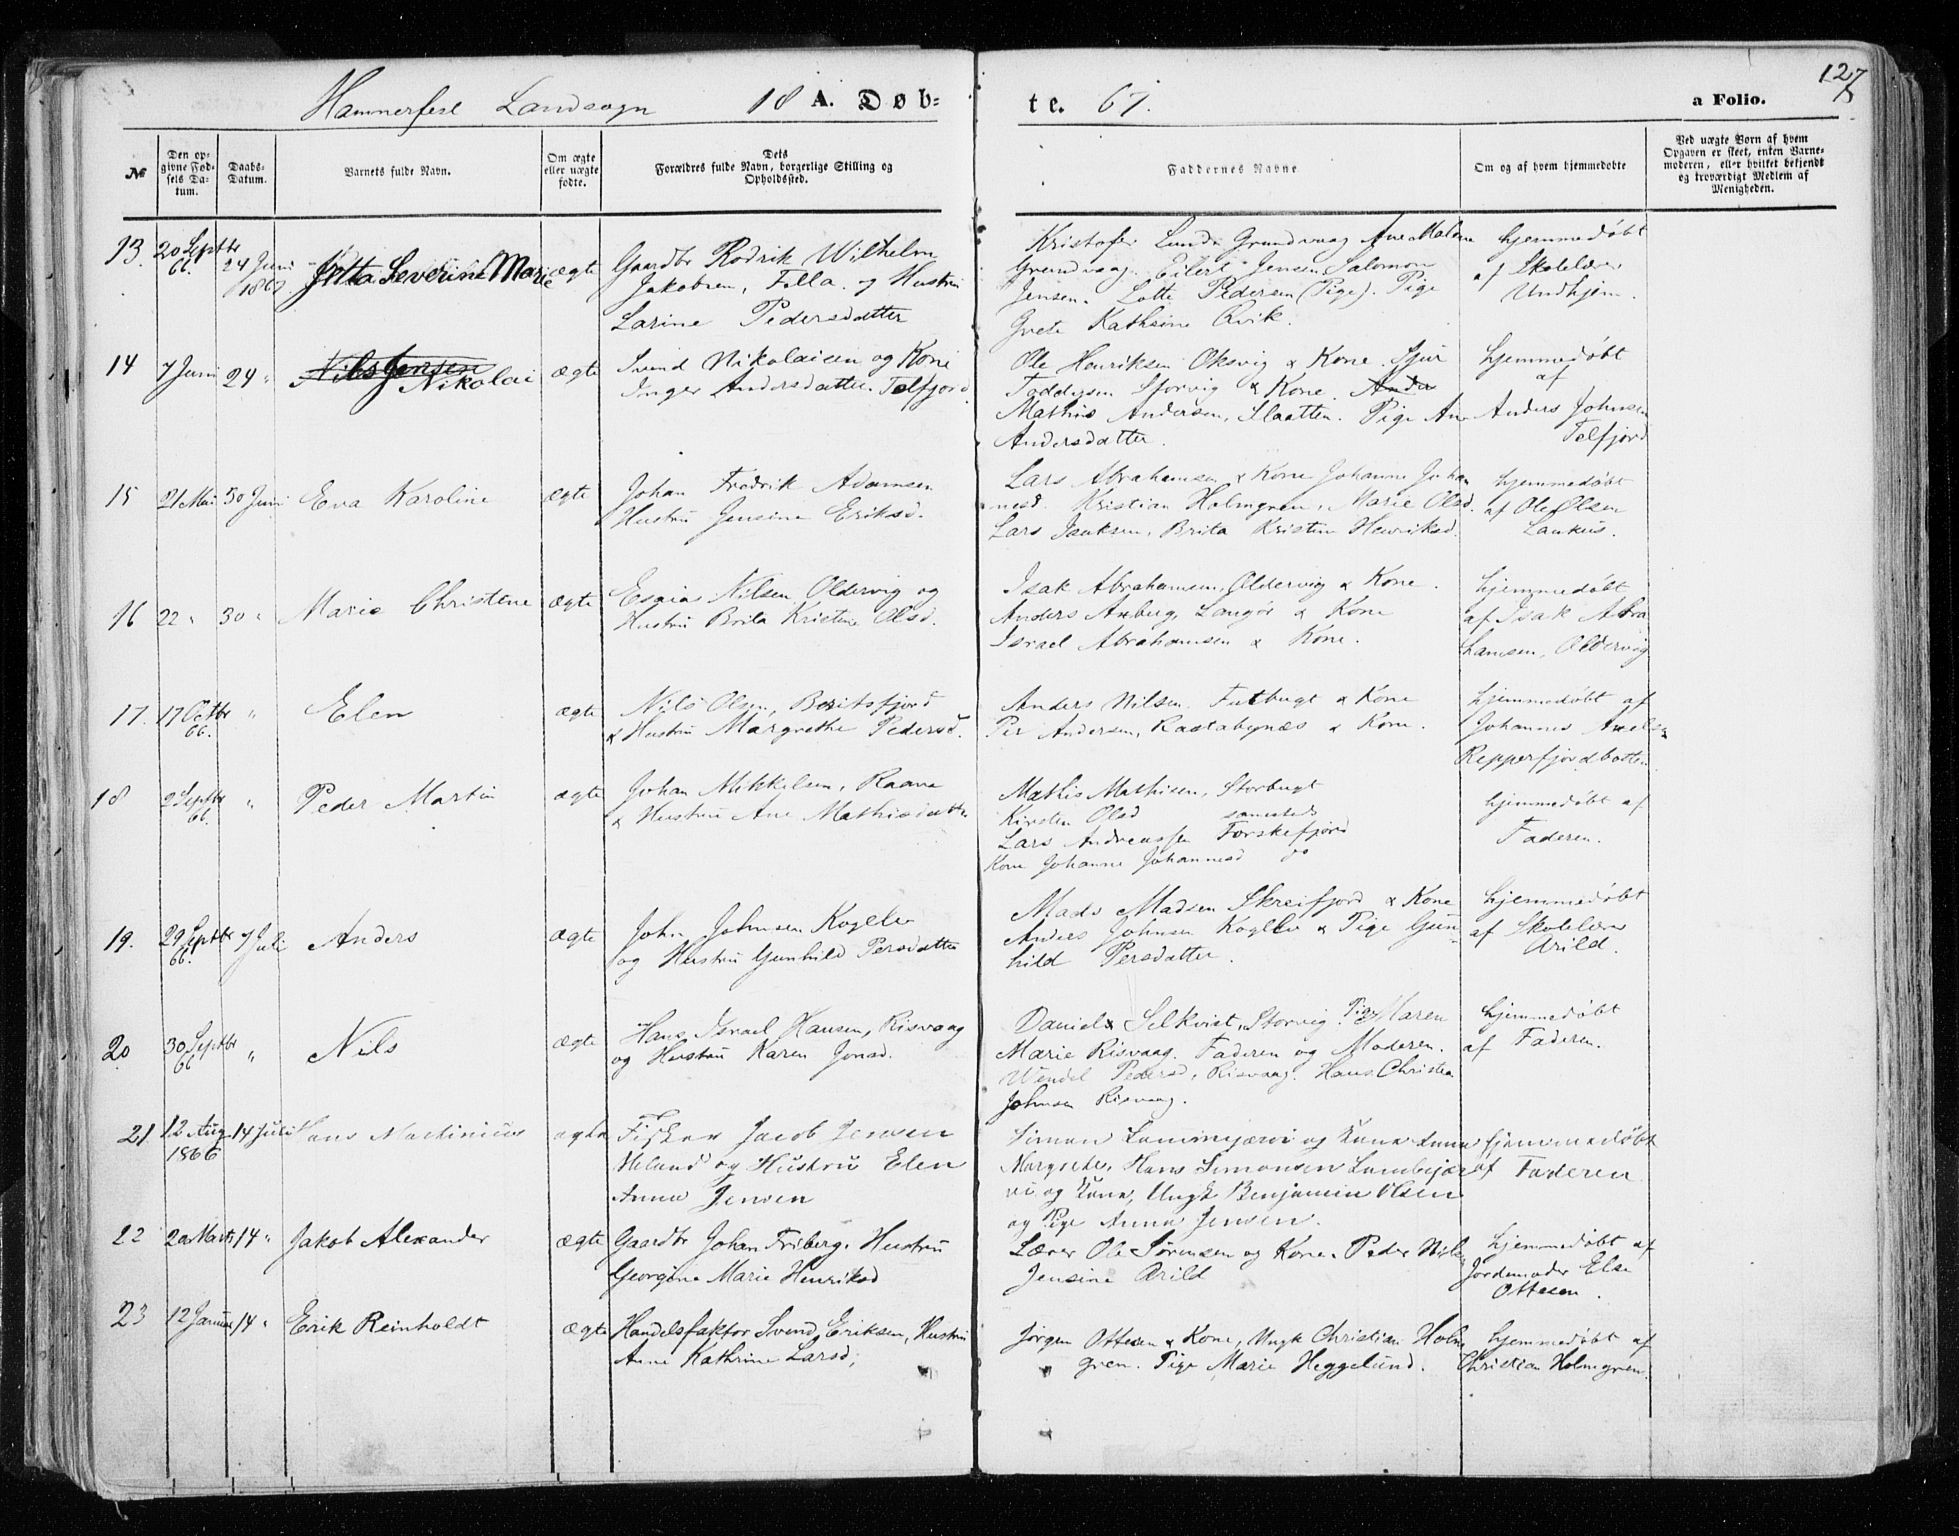 Hammerfest Landsogn 18 A. Døb-
te. 67. a Folio. 127
№
Den op-
givne Fød-
sels Da-
tum.
Daabs-
Datum.
Barnets fulde Navn.
Om ægte
eller uægte
fødte.
Dets
Forældres fulde Navn, borgerlige Stilling og
Opholdssted.
Faddernes Navne
Om og af hvem hjemmedøbte
Ved uægte Børn af hvem
Opgaven er skeet, enten Barne-
moderen, eller hvilket bekjendt
og troværdigt Medlem af
Menigheden.
13. 20 Septbr 66. 24 Juni 1867 Jytta Severine Marie ægte
Gaardbr Rodrik Wilhelm
Jakobsen, Folla og Hustru
Larine Pedersdatter
Kristofer Lund Grundvaag Ane Malene
Grundvaag. Eilert Jensen Salomon
Jensen. Lotte Pedersen (Pige). Pige
Grete Kathrine Qvik.
hjemmedøbt
af Skolelærer
Undhjem.
14 7 Juni 24 " Nils Jensen
Nikolai ægte
Svend Nikolaisen og Kone
Inger Andersdatter. Tofjord.
Ole Henriksen Oksvig & Kone. Sjur
Faddesen Sforvig & Kone. Ander
Mathis Andersen, Slaatten. Pige Ane
Andersdatter.
hjemmedøbt
af
Anders Johnsen
Tofjord
15 21 Mai 30 Juni Eva Karoline ægte
Johan Fredrik Adamsen
Hustru Jensine Eriksd.
Lars Abrahamsen & Kone Johanne Johan
nesd. Kristian Holmgren, Marie Olsd.
Lars Isaksen, Brita Kristine Henriksd.
hjemmedøbt
af Ole Olsen
Laukus.
16 22 " 30 " Marie Christene ægte
Esaias Nilsen Oldervig og
Hustru Brita Kristine Olsd.
Isak Abrahamsen, Oldervig & Kone.
Anders Amberg, Langør & Kone
Israel Abrahamsen & Kone.
hjemmedøbt
af Isak Abra
hamsen, Oldervig
17. 17 Octbr 66. " Elen ægte
Nils Olsen, Beritsfjord
& Hustru Margrethe Pedersd.
Anders Nilsen. Fatbugt & Kone
Per Andersen, Rastabynæs & Kone.
hjemmedøbt af
Johannes Axelsen
Repperfjordbotten
18 2 Septbr 66. " Peder Martin ægte
Johan Mikkelsen, Raava
& Hustru Ane Mathisdatter
Mathis Mathisen, Storbugt
Kirsten Olsd samesteds
Lars Andreassen Torskefjord
Kone Johanne Johannesd do
hjemmedøbt af
Faderen.
19. 29 Septbr 66. 7 Juli Anders ægte
John Johnsen Kogllev
og Hustru Gunhild Persdatter
Mads Madsen Skreifjord & Kone
Anders Johnsen Kogllev & Pige Gun-
hild Persdatter.
hjemmedøbt
af Skolelærer
Arild.
20 30 Septbr 66 " Nils ægte
Hans Israel Hansen, Risvaag
og Hustru Karen Jonsd.
Daniel Selkvist, Storvig. Pige Maren
Marie Risvaag. Faderen og Moderen.
Wendel Pedersd, Risvaag. Hans Christian
Johnsen Risvaag.
hjemmedøbt
af Faderen.
21 12 Aug 1866 14 Juli Hans Martinius ægte
Fisker Jacob Jensen
og Hustru Elen
Anna Jensen
Simon Lammejærvi og Kone Anna
Margrete, Hans Simonsen Lambijær
vi og Kone, Ungk Benjamin Olsen
og Pige Anna Jensen.
hjemmedøbt
af Faderen
22 20 Marts 14 " Jakob Alexander ægte
Gaardbr Johan Friberg. Hustru
Georgine Marie Henriksd
Lærer Ole Sørensen og Kone. Peder Nils
Jensine Arild
hjemmedøbt af
Jordemoder Else
Ottesen.
23 12 Januar 14 " Erik Reinholdt ægte
Handelsfaktor Svend Eriksen, Hustru
Anne Kathrine Larsd,
Jørgen Ottesen & Kone, Ungk Christian Holm
gren. Pige Marie Heggelund.
hjemmedøbt af
Christian Holmgren.